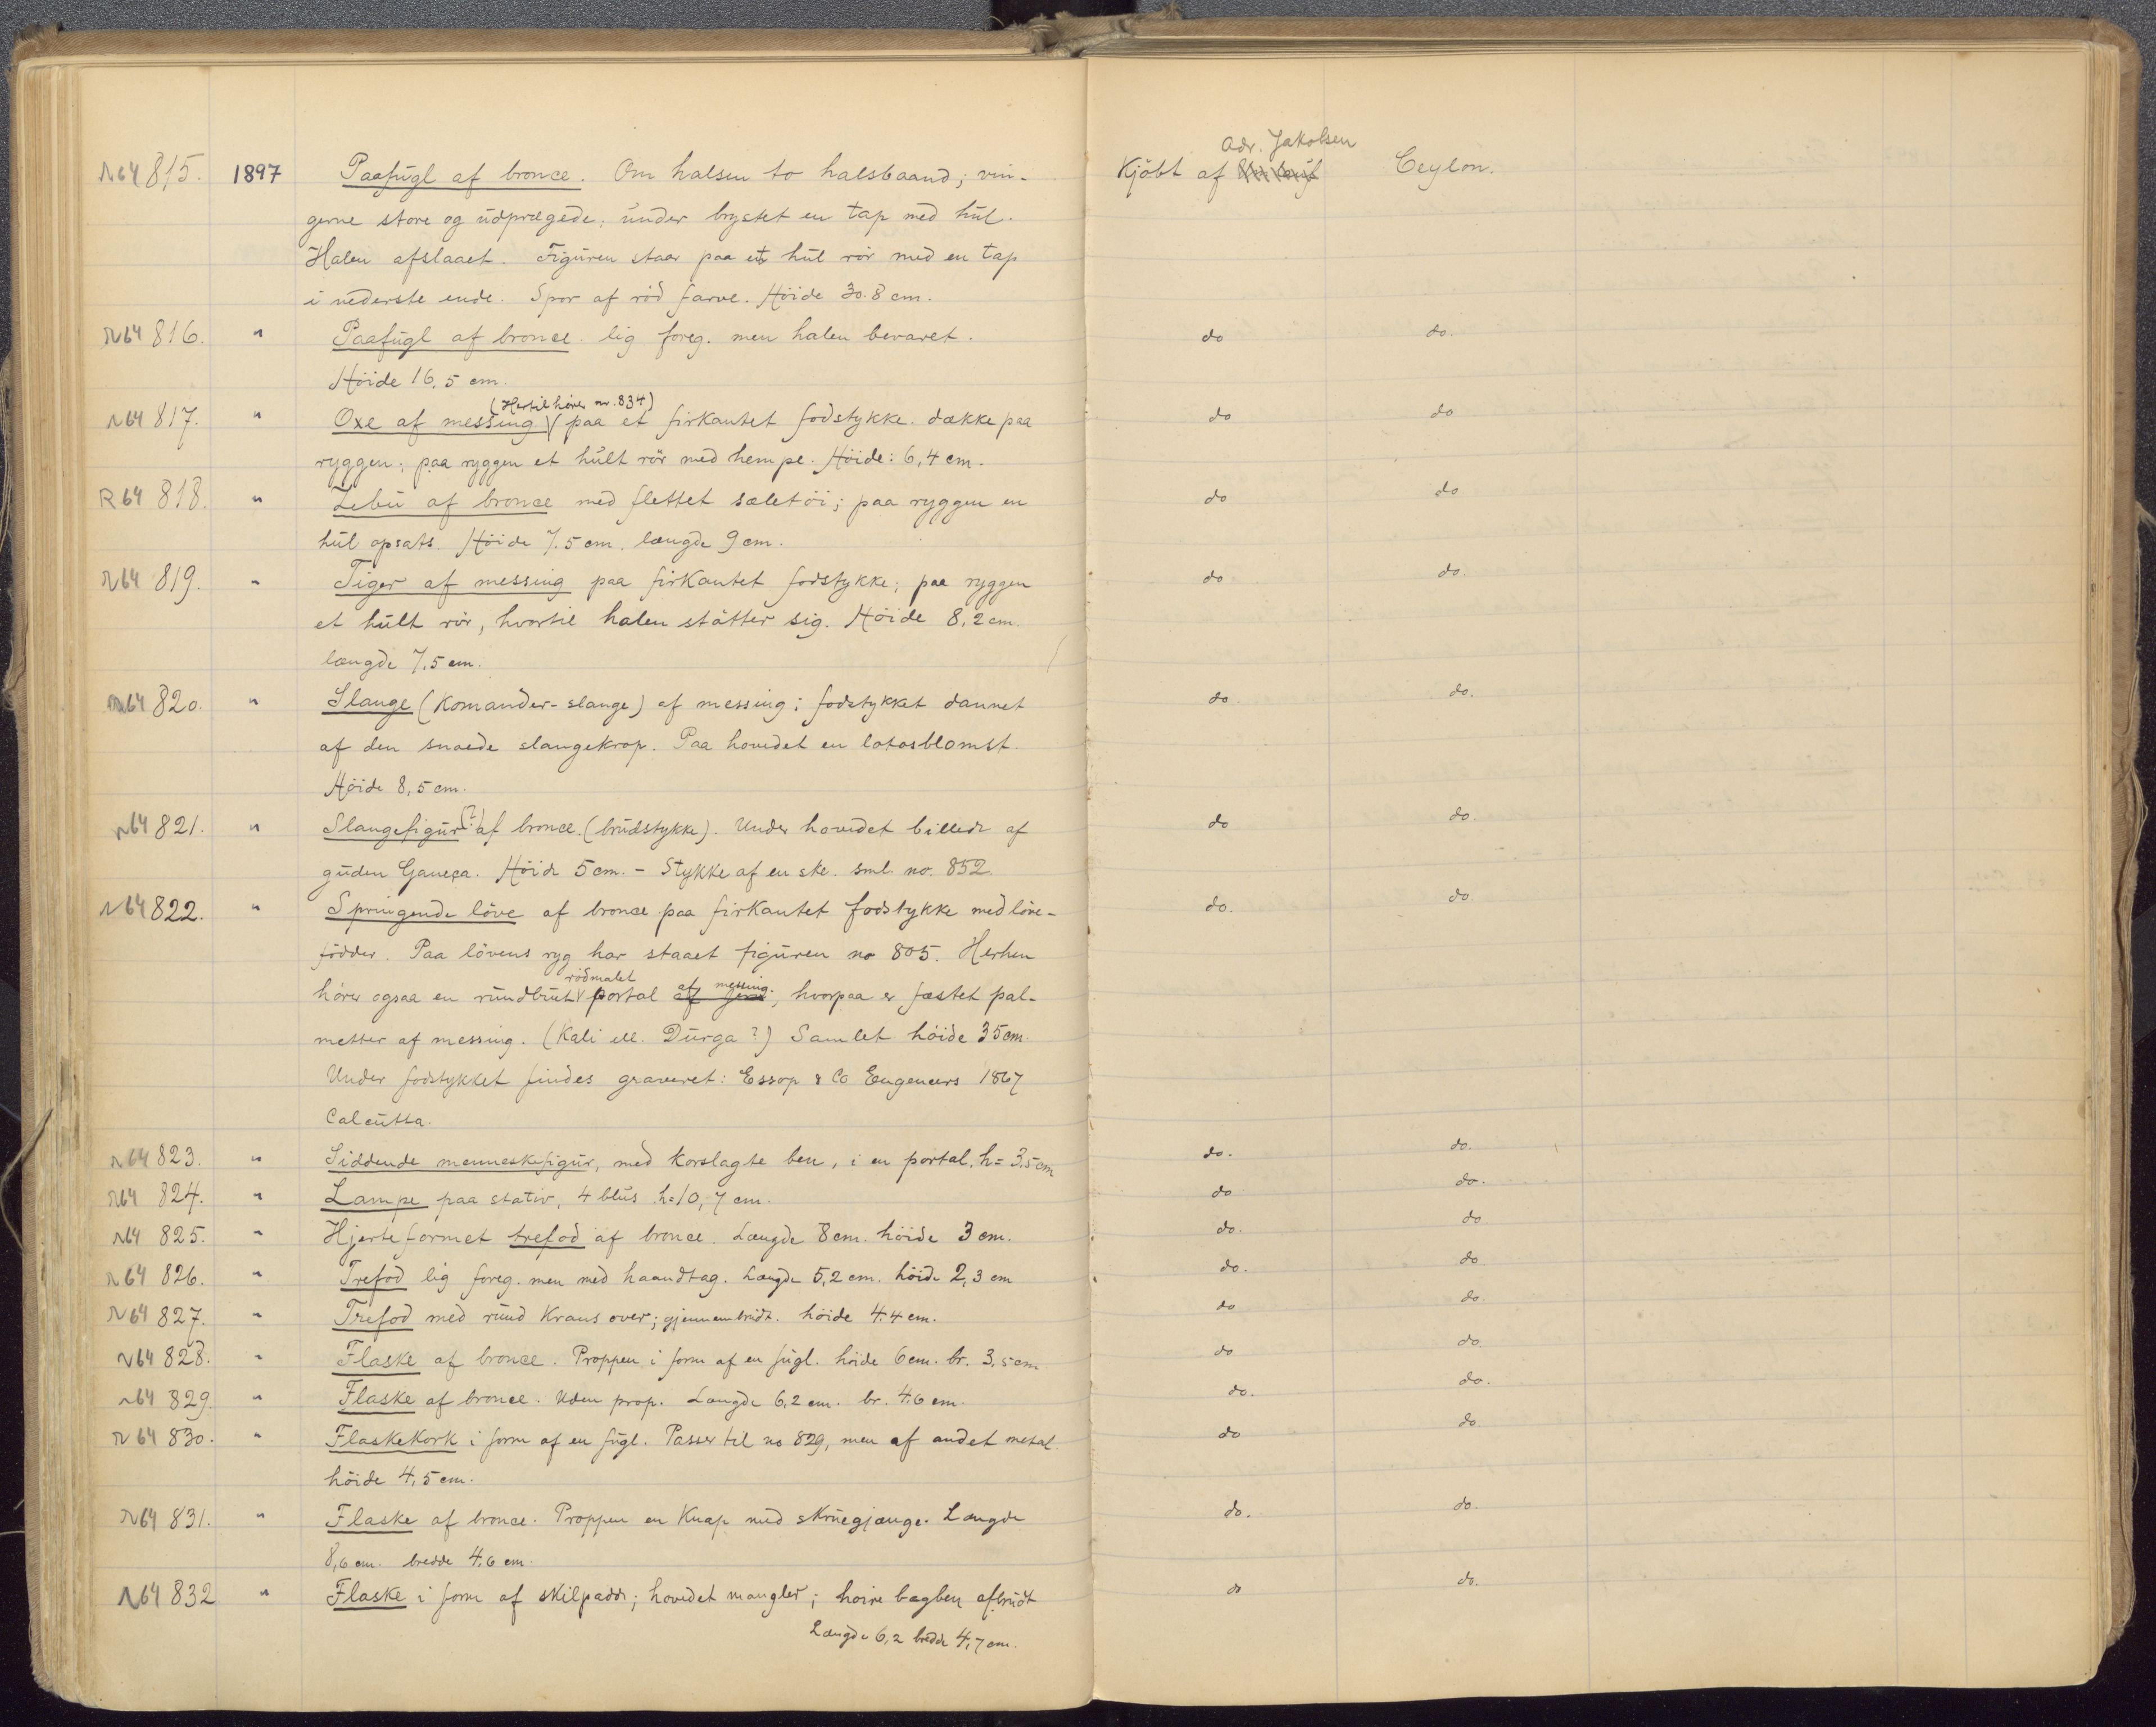 Adr. Jakobsen
N64 815. 1897 Paafugl af bronce. Om halsen to halsbaand; vin- Kjöbt af Ceylon.
gerne store og udprægede; under brystet en tap med hul.
Halen afslaaet. Figuren staar paa et hul rör med en tap
i nederste ende. Spor af röd farve. Höide 30.8 cm.
N64 816. " Paafugl af bronce. lig foreg. men halen bevaret. do do.
Höide 16,5 cm.
(Hertil hörer nr. 834)
N64 817. " Oxe af messing paa et firkantet fodstykke. dække paa do do
ryggen; paa ryggen et hult rör med hempe. Höide: 6,4 cm.
R64 818. " Zebu af bronce med flettet sæletöi; paa ryggen en do do
hul opsats. Höide 7.5 cm. længde 9 cm.
N64 819. " Tiger af messing paa firkantet fodstykke; paa ryggen do do.
et hult rör, hvortil halen stötter sig. Höide 8,2 cm.
længde 7,5 cm.
N64 820. " Slange (Komander-slange) af messing; fodstykket dannet do. do.
af den snoede slangekrop. Paa hovedet en lotosblomst.
Höide 8,5 cm.
N64 821. " Slangefigur (?) af bronce. (brudstykke). Under hovedet billede af do do.
guden Ganeça. Höide 5 cm. - Stykke af en ske. sml. no. 852.
N64 822. " Springende löve af bronce paa firkantet fodstykke med löve- do. do.
födder. Paa lövens ryg har staaet figuren no 805. Herhen
rödmalet af messing.
hörer ogsaa en rundbuet portal af jern, hvorpaa er fæstet pal-
metter af messing. (Kali ell. Durga?) Samlet höide 35 cm.
Under fodstykket findes graveret: Essop & Co Engeneers 1867
Calcutta.
N64 823. " Siddende menneskefigur, med korslagte ben, i en portal. h= 3.5 cm do. do.
N64 824. " Lampe paa stativ, 4 blus. h=10,7 cm. do do.
N64 825. " Hjerteformet trefod af bronce. Længde 8 cm. höide 3 cm. do. do.
N64 826. " Trefod lig foreg. men med haandtag. Længde 5,2 cm. höide 2,3 cm do. do.
N64 827. " Trefod med rund Krans over; gjennembrudt. höide 4.4 cm. do do.
N64 828. " Flaske af bronce. Proppen i form af en fugl. höide 6 cm. br. 3,5 cm do do.
N64 829. " Flaske af bronce. Uden prop. Længde 6,2 cm. br. 4.6 cm. do. do.
N64 830. " Flaskekork i form af en fugl. Passer til no 829, men af andet metal. do do.
höide 4,5 cm.
N64 831. " Flaske af bronce. Proppen en Knap med skruegjænge. Længde do. do.
8,6 cm. bredde 4,6 cm.
N64 832 " Flaske i form af skilpadde; hovedet mangler; hoire bagben afbrudt do do.
Længde 6,2 bredde 4,7 cm.